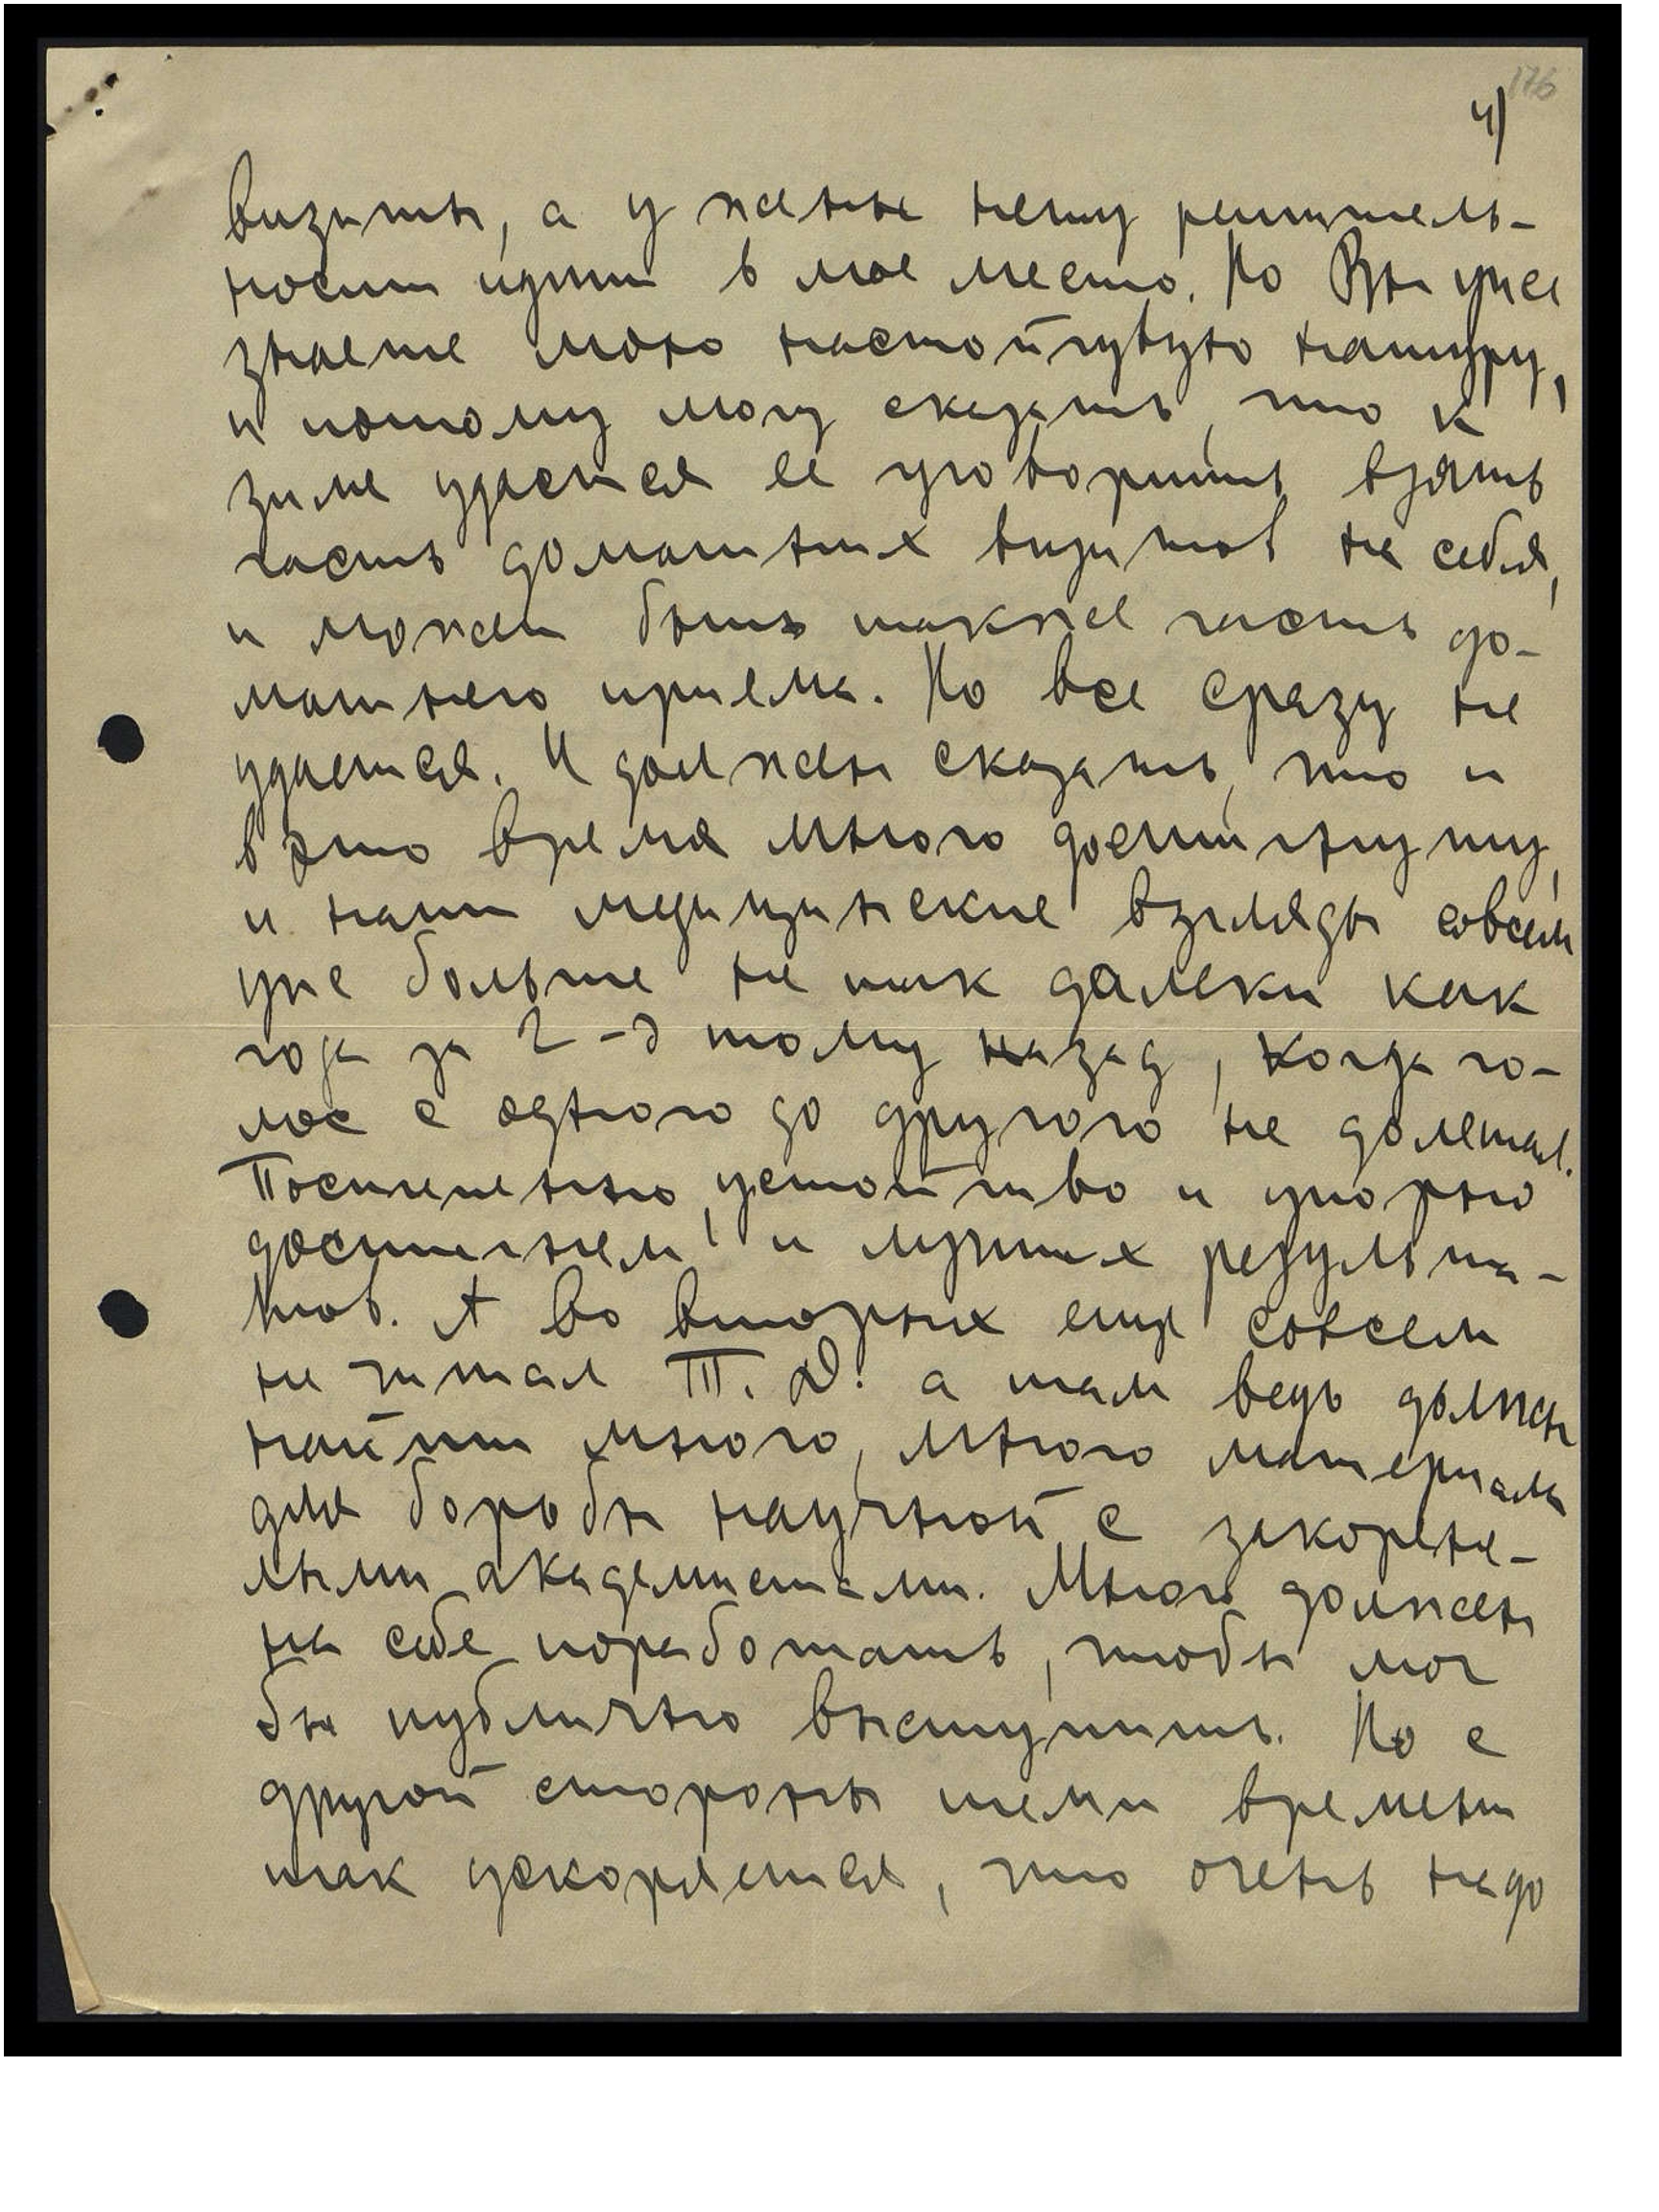 176
4)
визиты, а у жены нету решитель-
ности идти в мое место. Но Вы уже
знаете мою настойчивую натуру,
и потому могу сказать, что к
зиме удастся ее уговорить взять
часть домашних визитов на себя,
и может быть также часть до-
машнего приема. Но все сразу не
удается. И должен сказать, что и
в это время много достигнуту,
и наши медицинские взгляды совсем
уже больше не так далеки как
года за 2-3 тому назад, когда го-
лос с одного до другого не долетал.
Постепенно, устойчиво и упорно
достигнем и лучших результа-
тов. А во вторых еще совсем
не читал Т. Д. а там ведь должен
найти много, много материалы
для борьбы научной с закорене-
лыми академистами. Много должен
на себе поработать, чтобы мог
бы публично выступить. Но с
другой стороны темп времени
так ускоряется, что очень надо